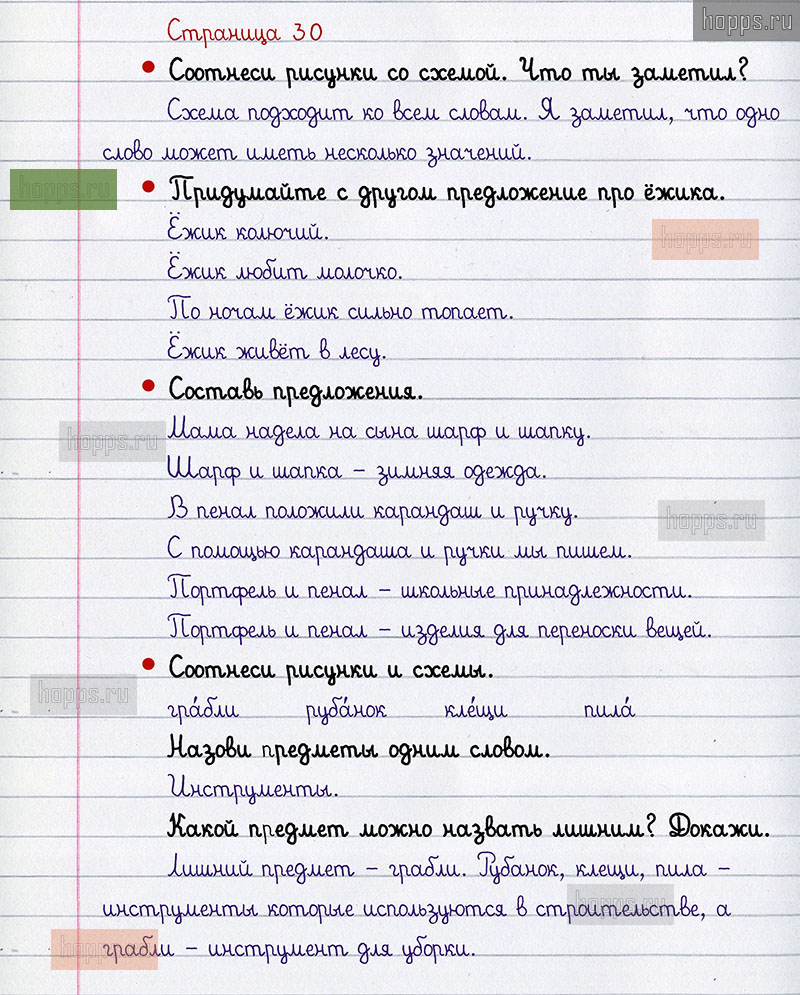 hopps.ru
Страница 30
• Соотнеси рисунки со схемой. Что ты заметил?
Схема подходит ко всем словам. Я заметил, что одно
слово может иметь несколько значений.
hopps.ru
• Придумайте с другом предложение про ёжика.
Ёжик колючий.
hopps.ru
Ёжик любит молочко.
По ночам ёжик сильно топает.
Ёжик живёт в лесу.
• Составь предложения.
hopps.ru
Мама надела на сына шарф и шапку.
Шарф и шапка – зимняя одежда.
В пенал положили карандаш и ручку.
hopps.ru
С помощью карандаша и ручки мы пишем.
Портфель и пенал – школьные принадлежности.
Портфель и пенал – изделия для переноски вещей.
• Соотнеси рисунки и схемы.
hopps.ru
гра́бли руба́нок кле́щи пила́
Назови предметы одним словом.
Инструменты.
Какой предмет можно назвать лишним? Докажи.
Лишний предмет – грабли. Рубанок, клещи, пила –
hopps.ru
инструменты которые используются в строительстве, а
hopps.ru
грабли – инструмент для уборки.